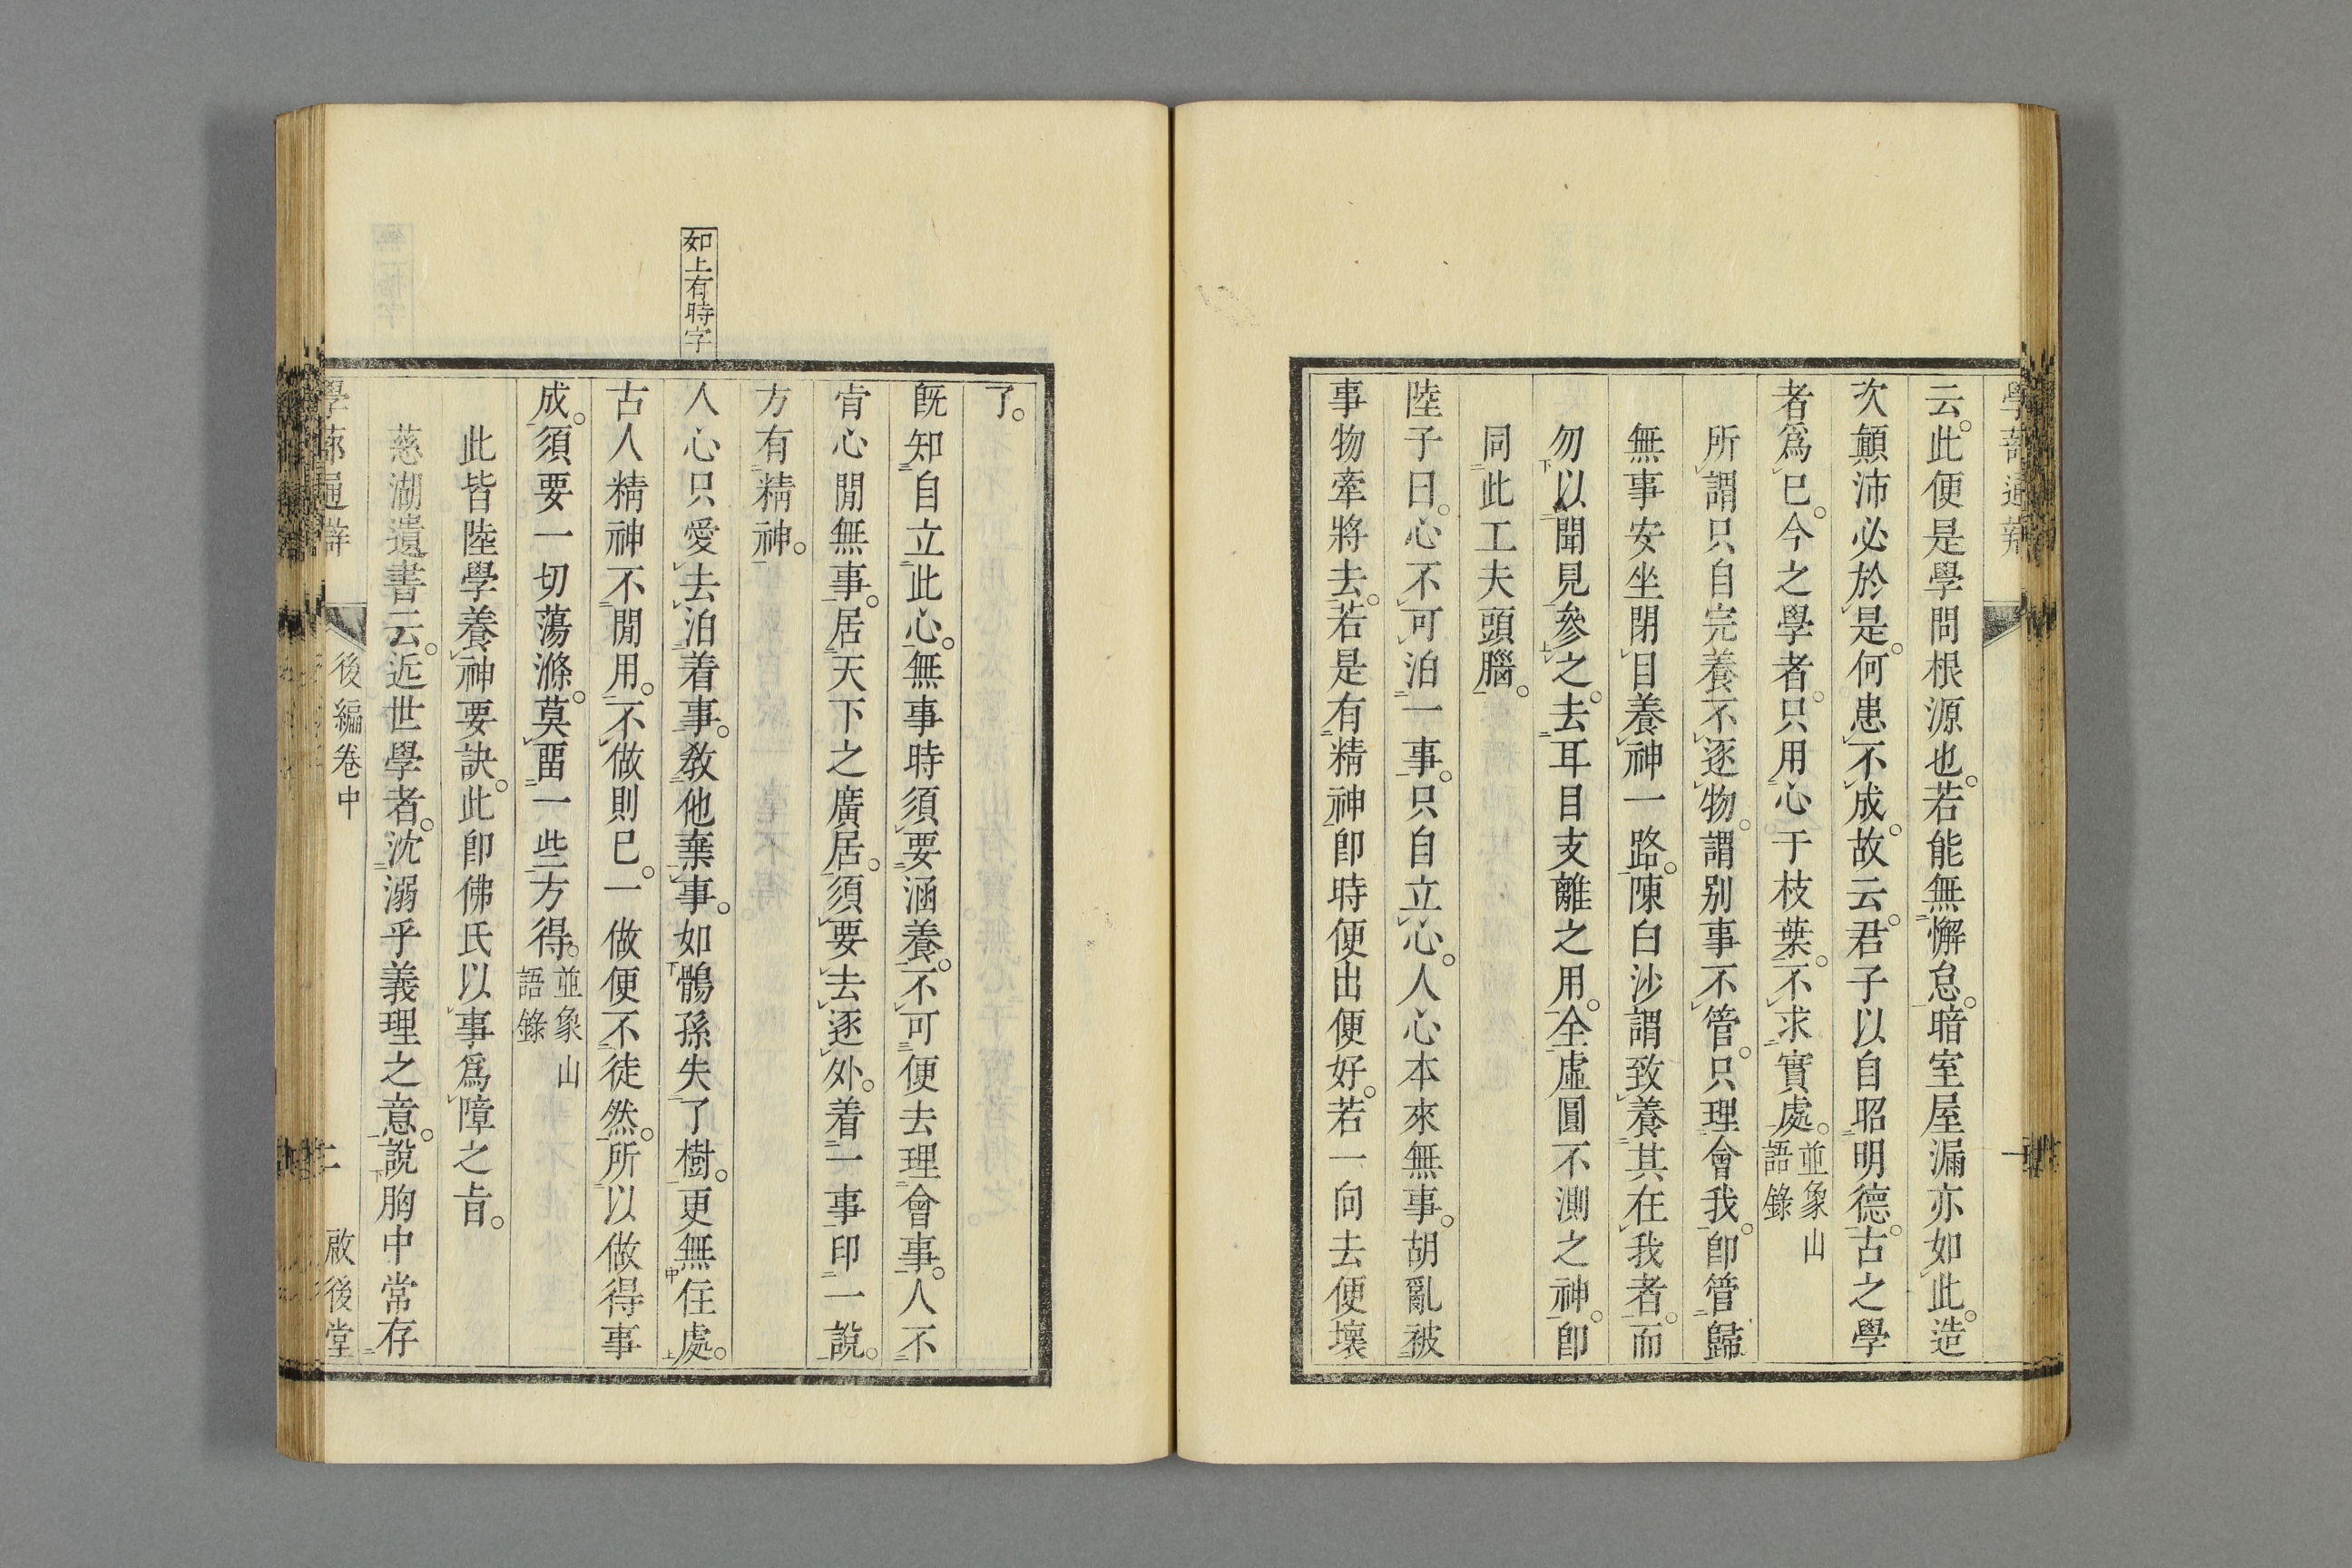 學蔀通辨
云。此便是學問根源也。若能無懈怠。暗室屋漏亦如此。造
次顛沛必於是。何患不成。故云。君子以自昭明德。古之學
者爲已。今之學者。只用心于枝葉。不求實處。並象山語錄
所謂只自完養不逐物。謂別事不管。只理會我。卽管歸
無事安坐閉目養神一路。陳白沙謂致養其在我者。而
勿以聞見參之。去耳目支離之用。全虛圓不測之神。卽
同此工夫頭腦。
陸子曰。心不可泊一事。只自立心。人心本來無事。胡亂被
事物牽將去。若是有精神卽時便出便好。若一向去便壞
了。
旣知自立此心。無事時須要涵養。不可便去理會事。人不
肯心閒無事。居天下之廣居。須要去逐外。着一事印一說。
方有精神。
如上有時字
人心只愛去泊着事。敎他棄事。如鶻孫失了樹。更無住處。
古人精神不閒用。不做則已。一做便不徒然。所以做得事
成。須要一切蕩滌。莫畱一些方得。並象山語錄
此皆陸學養神要訣。此卽佛氏以事爲障之旨。
慈湖遺書云。近世學者。沈溺乎義理之意。說胸中常存
學蔀通辨
後編卷中
二
啟後堂